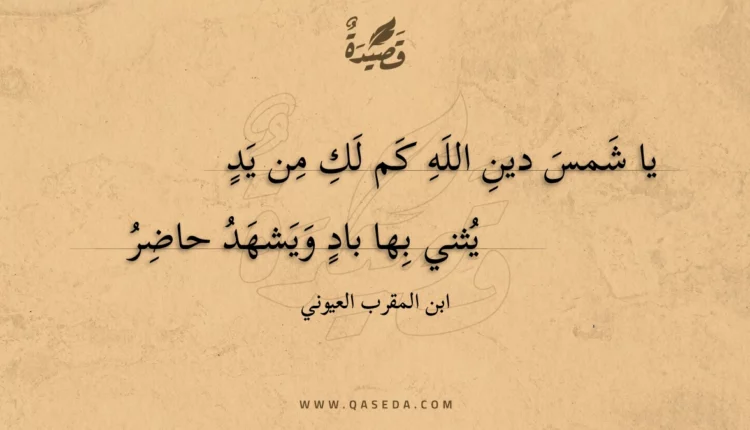 قَصِيْدَةٌ
يا شَمسَ دينِ اللَهِ كَم لَكِ مِن يَدٍ
يُثني بِها بادٍ وَيَشهَدُ حاضِرُ
ابن المقرب العيوني
WWW.QASEDA.COM